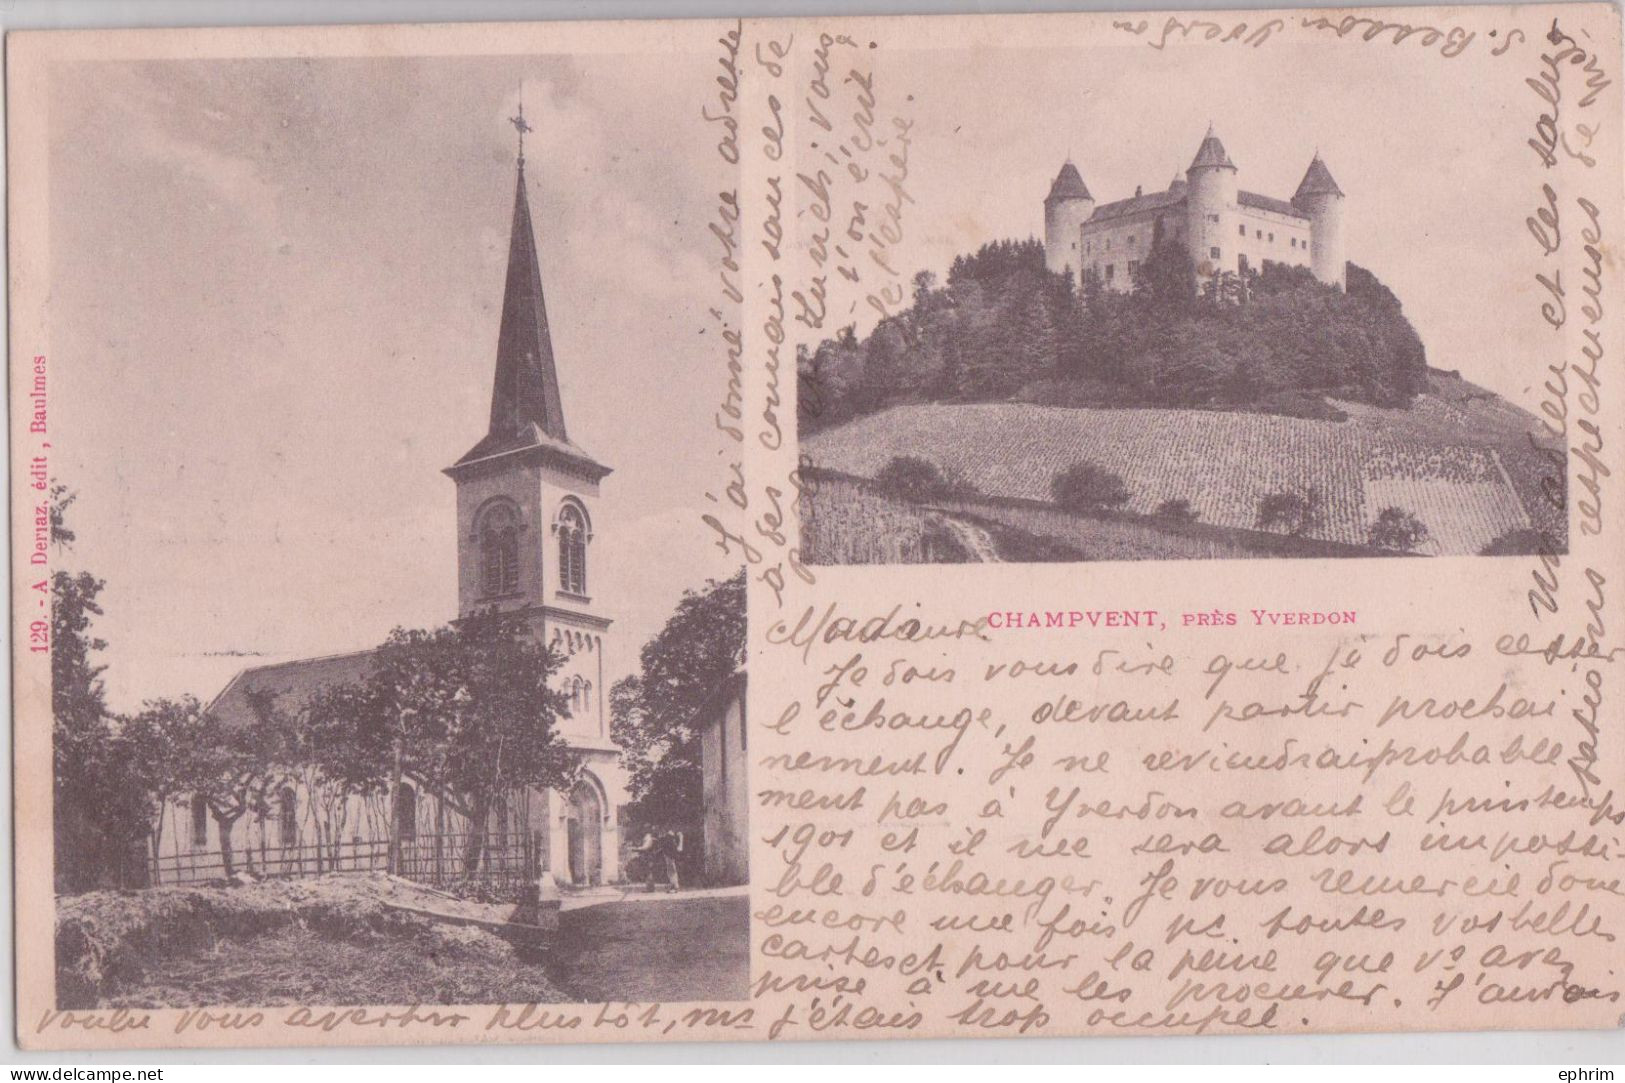 129. - A Deriaz, édit, Baulmes
CHAMPVENT, PRÈS YVERDON
Madame
Je dois vous dire que je dois cesser
l'échange, devant partir prochai
nement. Je ne reviendrai probable
ment pas à Yverdon avant le printemps
1901 et il me sera alors impossi-
ble d'échanger. Je vous remercie donc
encore une fois pr toutes vos belles
cartes et pour la peine que vs avez
prise à me les procurer. J'aurais
voulu vous avertir plus tôt, ms j'étais trop occupé.
J'ai donné votre adresse
à des connaissances de
Zurich; vous
a-t'on écrit?
Je l'espère.
adieu et les salu-
tations respectueuses de Mel
S. Besson Yverdon
ephrim